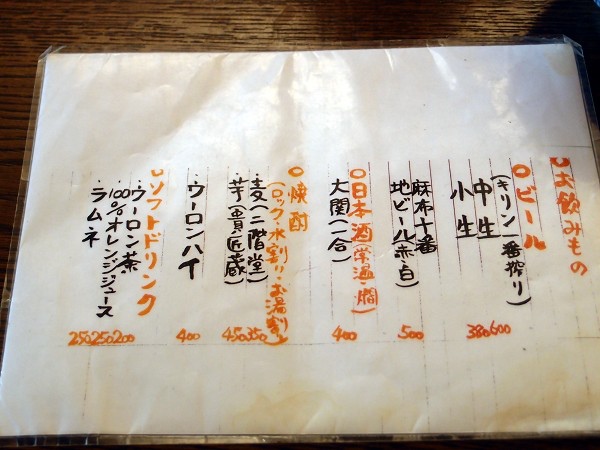 ○お飲みもの
○ビール
(キリン一番搾り)
中生 600
小生 380
麻布十番
地ビール(赤・白) 500
○日本酒(常温・燗)
大関(一合) 400
○焼酎
(ロック・水割り・お湯割り)
・麦(二階堂) 350
・芋(貴匠蔵) 450
・ウーロンハイ 400
○ソフトドリンク
・ウーロン茶 200
・100%オレンジジュース 250
・ラムネ 250